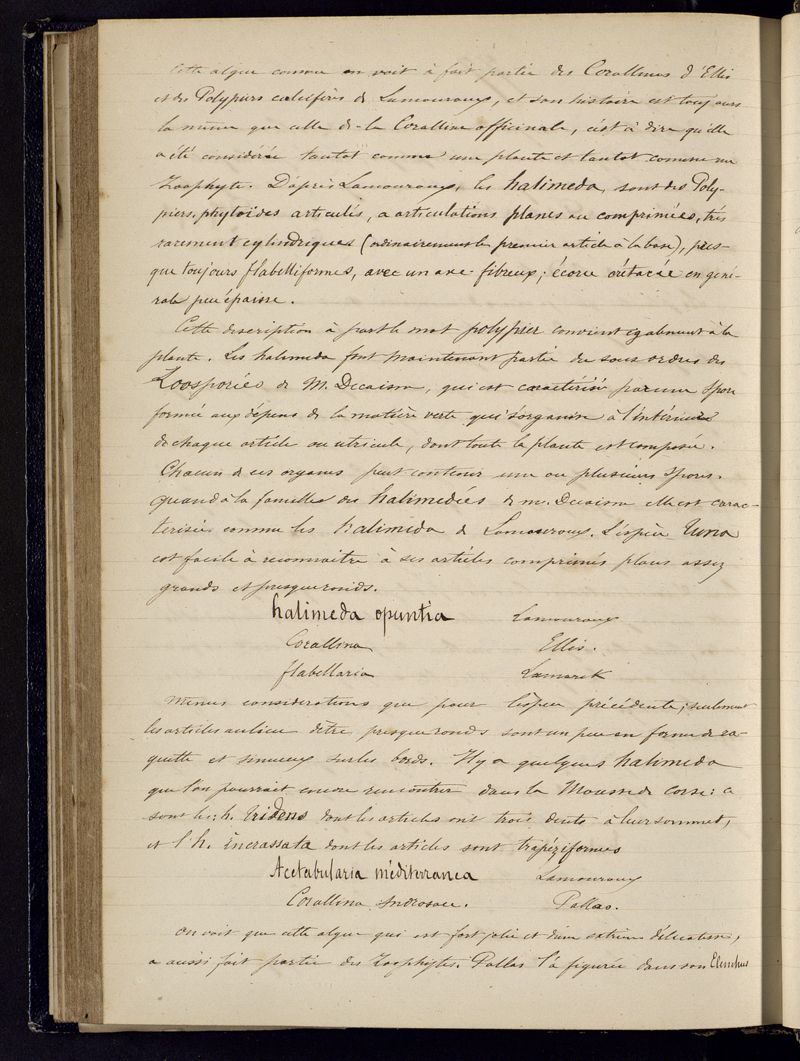 Cette algue comme on voit à fait partie des Corallines d'Ellis
et des Polypiers calcifères de Lamouroux, et son histoire est toujours
la même que celle de la Coralline officinale, c'est à dire qu'elle
a été considérée tantot comme une plante et tantot comme un
Zoophyte. D'après Lamouroux, les halimeda, sont des Poly-
piers, phytoïdes articulés, a articulations planes ou comprimées, très
rarement cylindriques (ordinairement le premier article à la base), pres-
que toujours flabelliformes, avec un axe fibreux; écorce crétacée en géné-
rale peu épaisse.
Cette description à part le mot polypier convient egalement à la
plante. Les halimeda font maintenant partie du sous ordres des
Zoosporées de M. Decaisne, qui est caractérisé par une Spore
formée aux dépens de la matière verte qui s'organise à l'intérieur
de chaque article ou utricule, dont toute la plante est composée.
Chacun de ces organes peut contenir une ou plusieurs Spores.
quand à la familles des halimedées de m. Decaisne elle est carac-
terisée comme les halimeda de Lamouroux. L'espèce tuna
est facile à reconnaitre à ses articles comprimés plans assez
grands et presque ronds.
halimeda opuntia Lamouroux
Corallina Ellis.
flabellaria Lamarck
mêmes considérations que pour l'espèce précédente; seulement
les articles au lieu d'être presque ronds sont un peu en forme de ra-
quette et sinueux sur les bords. Il y a quelques halimeda
que l'on pourrait encore rencontrer dans la Mousse de Corse: ce
sont les: h. tridens dont les articles ont trois dents à leur sommet,
et l'h. incrassata dont les articles sont trapéziformes
Acetabularia méditerranea Lamouroux
Corallina Androsace. Pallas.
On voit que cette algue qui est fort jolie et d'une extrême délicatesse,
a aussi fait partie des Zoophytes. Pallas l'a figurée dans son Elenchus